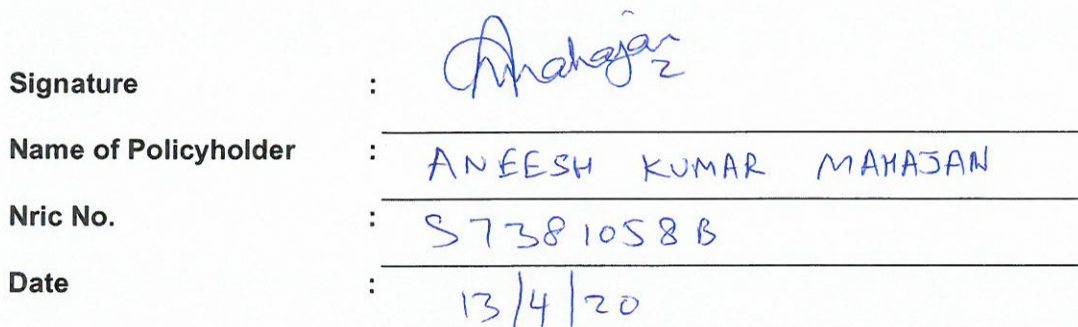 Signature : Amahajan
Name of Policyholder : ANEESH KUMAR MAHAJAN
Nric No. : S7381058B
Date : 13/4/20